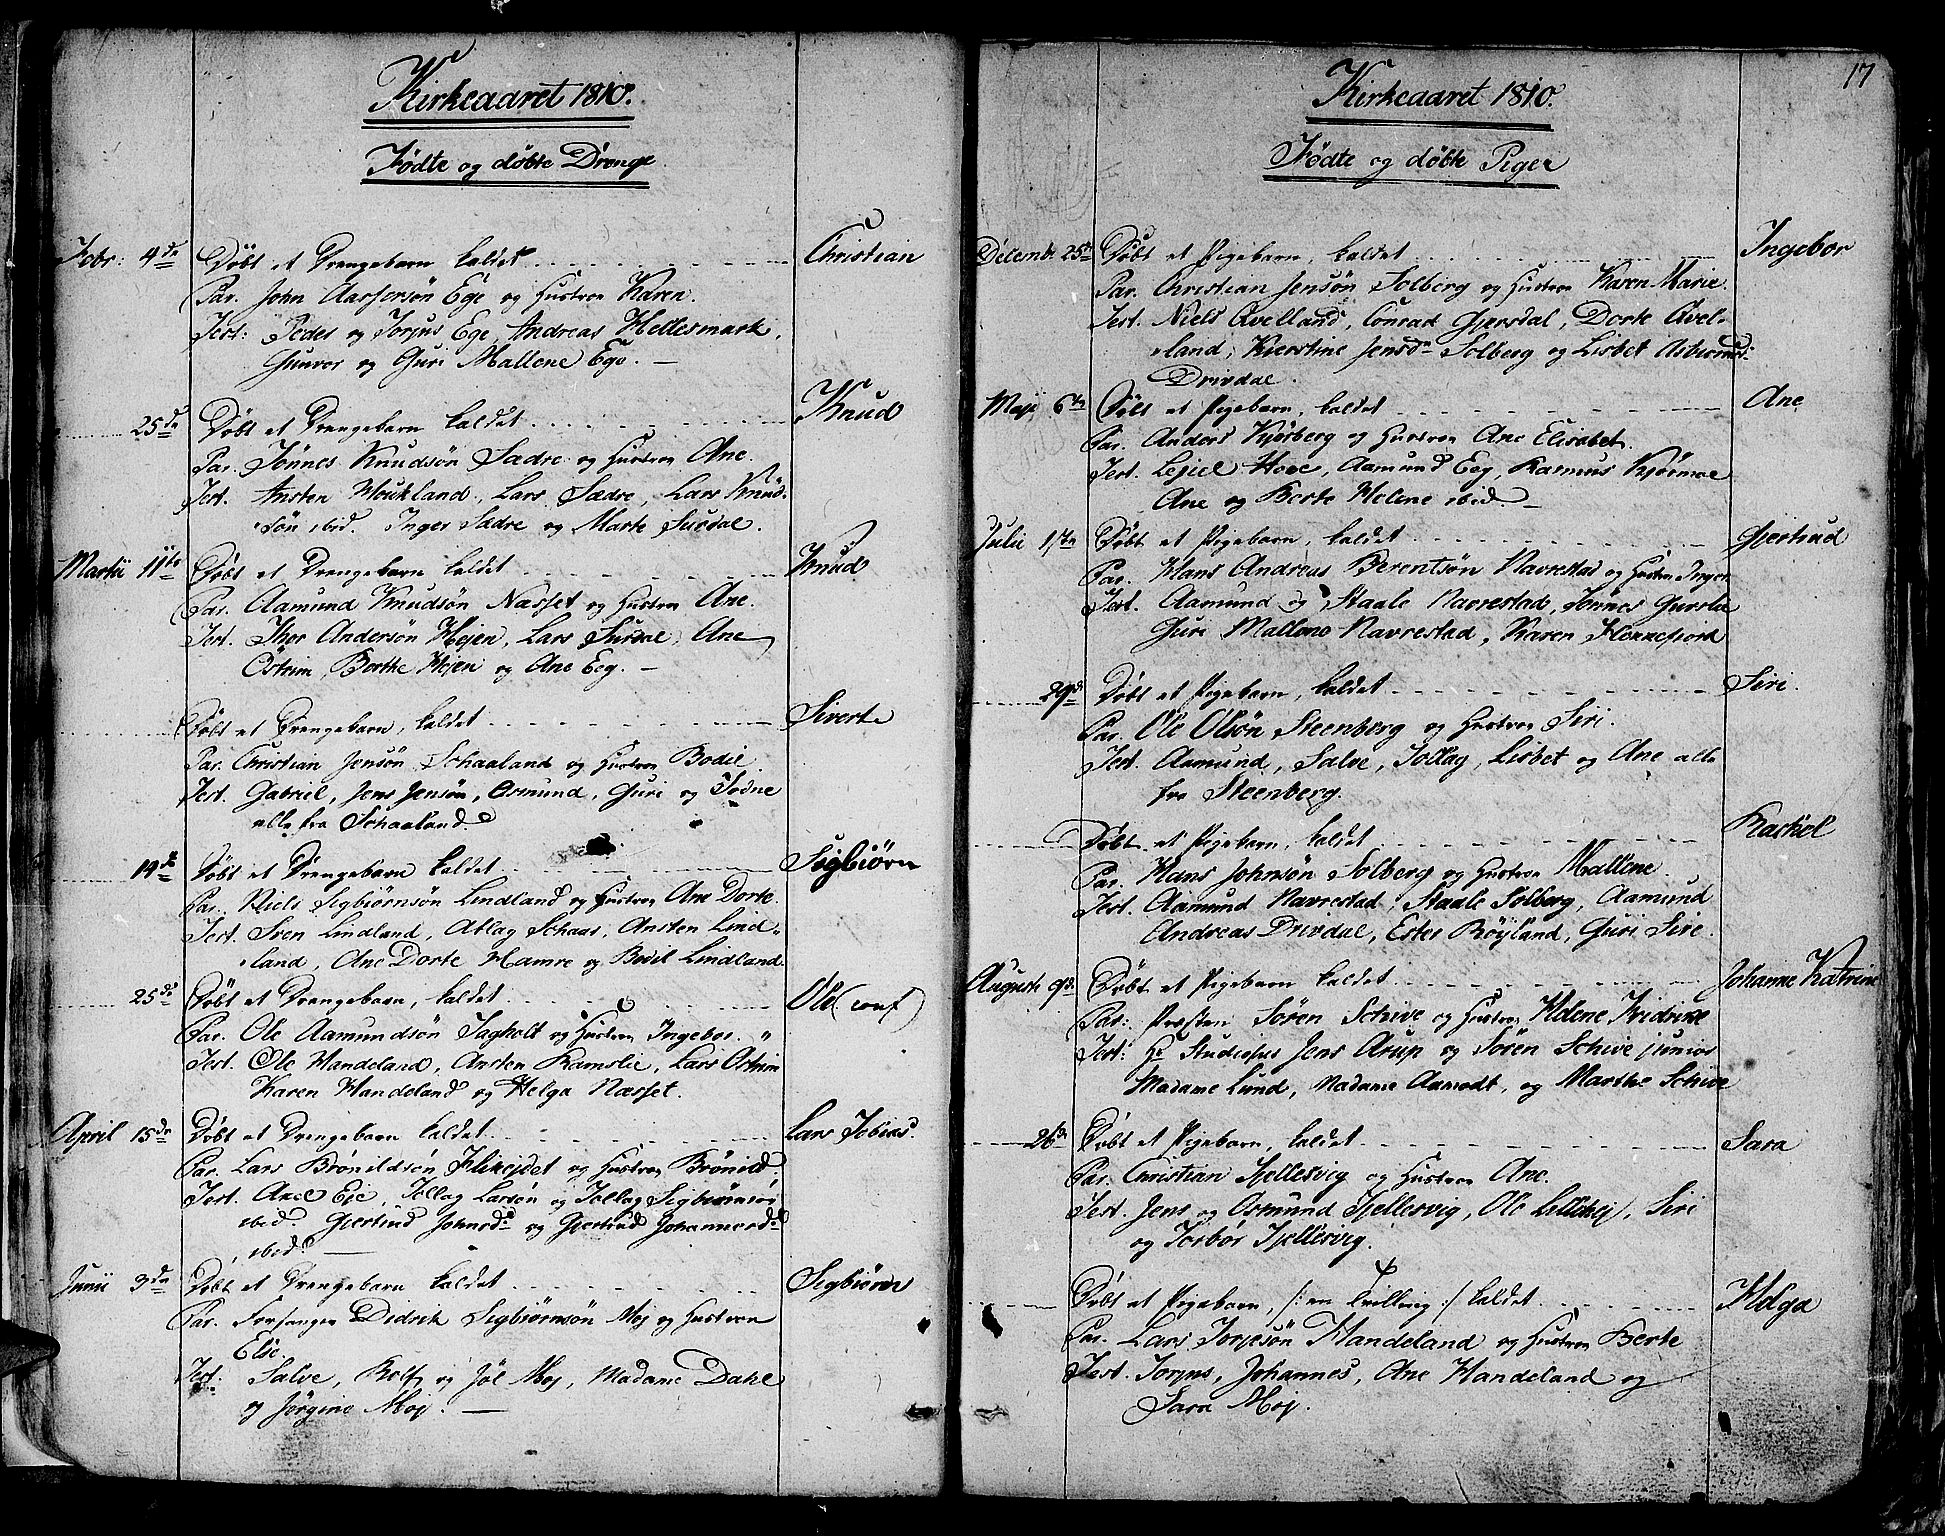 Kirkeaaret 1810.
Fødte og døbte Drenge
Febr: 4de Døbt et Drengebarn kaldet Christian
Par. John Aasersøn Ege og Hustroe Karen.
Test: Peder og Torjus Ege, Andreas Hettesmark,
Gunvor og Guri Mallene Ege. —
25de Døbt et Drengebarn kaldet Knud
Par. Tönnes Knudsøn Sædre og Hustroe Ane.
Test. Ansten Houkland, Lars Sædre, Lars Knud-
søn ibid. Inger Sædre og Marte Surdal.
Martii 11te Døbt et Drengebarn kaldet Knud
Par. Aamund Knudsøn Næsset og Hustroe Ane.
Test. Thor Andersøn Højen, Lars Surdal, Ane
Østrim, Berthe Højen og Ane Eeg. —
Døbt et Drengebarn, kaldet Siverte
Par. Christian Jensøn Schaaland og Hustroe Bodil
Test. Gabriel, Jens Jensøn, Osmund, Guri og Todne
alle fra Schaaland.
19de Døbt et Drengebarn kaldet Sigbiørn
Par. Niels Sigbiørnsøn Lindland og Hustroe Ane Dorte.
Test. Sven Lindland, Ablag Schaar, Ansten Lind-
land, Ane Dorte Hamre og Bodil Lindland
25de Døbt et Drengebarn, kaldet Ole (conf)
Par. Ole Aamundsøn Fagholt og Hustroe Ingebor.
Test. Ole Handeland, Ansten Ramslie, Lars Østrim
Karen Handeland og Helga Næsset.
April 15de Døbt et Drengebarn kaldet Lars Tobias.
Par. Lars Brönildsön Flikejdet og Hustroe Brönild.
Test. Axel Eje, Tollag Larsøn og Tollag Sigbiørnsøn
ibid. Giertrud Johnsd. og Giertrud Johannesd.
ibid. —
Junii 3de Døbt et Drengebarn kaldet Sigbiørn
Par. Forsanger Didrik Sigbiørnsøn Moj og Hustroe
Else.
Test: Salve, Rolf og Jöl Moj, Madame Dahl
og Jørgine Moj. —
17
Kirkeaaret 1810.
Fødte og døbte Piger
Decemb: 25de Døbt et Pigebarn, kaldet Ingebor
Par. Christian Jensøn Solberg og Hustroe Karen Marie.
Test. Niels Qvelland, Conrad Gjersdal, Dorte Qvel-
land, Kierstine Jensd. Solberg og Lisbet Asbiørnsd:
Drivdal.
Maji 6te Døbt et Pigebarn, kaldet Ane
Par. Anders Kjörberg og Hustroe Ane Elisabet.
Test. Lejiel Hoee, Aamund Eeg, Rasmus Kjörmoe
Ane og Berte Helene ibid. —
Julii 1ste Døbt et Pigebarn, kaldet Gjertrud
Par. Hans Andreas Berentsøn Navrestad og Hustroe Inger
Test. Aamund og Staale Navrestad, Tönnes Gurslie
Guri Mallene Navrestad, Karen Hennefiord
29de Døbt et Pigebarn, kaldet Siri.
Par. Ole Olsøn Steenberg og Hustroe Siri.
Test. Aamund, Salve, Tollag, Lisbet og Ane alle
fra Steenberg.
Døbt et Pigebarn, kaldet Rachel
Par. Hans Johnsøn Solberg og Hustroe Mallene.
Test. Aamund Navrestad, Staale Solberg, Aamund
Andreas Drivdal, Ester Röjland, Guri Sire.
Auguste 9de Døbt et Pigebarn kaldet Johanne Katrine
Par: Præsten Søren Schive og Hustroe Helene Fridrike
Test: Hr Studiosus Jens Arup og Søren Schive junior
Madame Lund, Madame Aamodt, og Marthe Schive
26de Døbt et Pigebarn, kaldet Sara
Par. Christian Fjellesvig og Hustroe Ane.
Test. Jens og Osmund Fjellesvig, Ole Lillehej, Siri
og Torbør Fjellesvig.
Døbt et Pigebarn, /: en Trilling :/ kaldet Helga
Par. Lars Torjesøn Handeland og Hustroe Berte
Test. Torjus, Johannes, Ane Handeland og
Sara Moj.